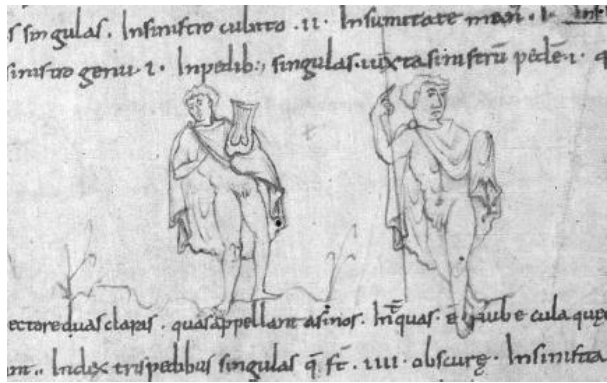 s singulas. In sinistro cubito .II. In sumitate man̄. I.
sinistro genu .I. In pedib; singulas. iuxta sinistrū pedē .I. q
ectore duas claras. quas appellant asinos. In quas. ē nube cula quę
Index tris pedibus singulas q̄ st̄. IIII. obscurę. In sinista